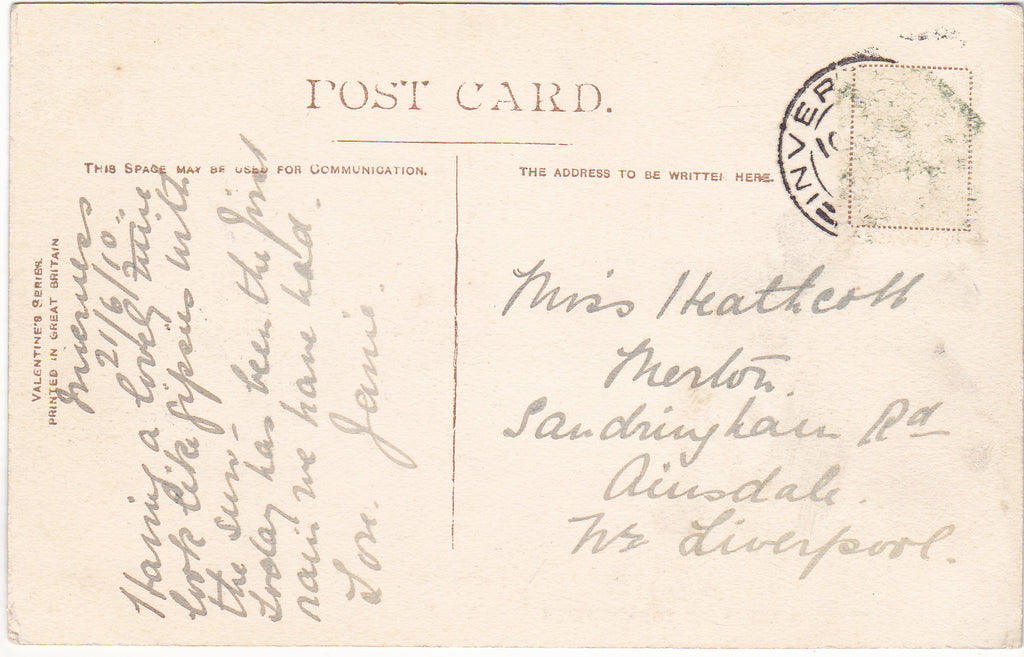 POST CARD.
THIS SPACE MAY BE USED FOR COMMUNICATION.
THE ADDRESS TO BE WRITTEN HERE.
INVER
VALENTINE'S SERIES.
PRINTED IN GREAT BRITAIN
Inverness
21/6/10.
Having a lovely time
look like gipsies with
the sun -
today has been the first
rain we have had.
Love. Janie.
Miss Heathcott
Merton
Sandringham Rd
Ainsdale.
Nr Liverpool.